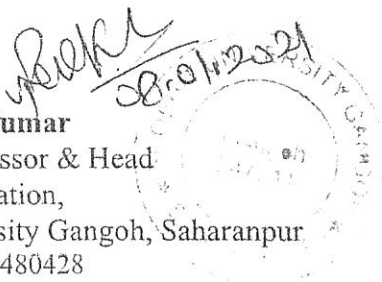 08.01.2021
umar
ssor & Head
ation,
sity Gangoh, Saharanpur
480428